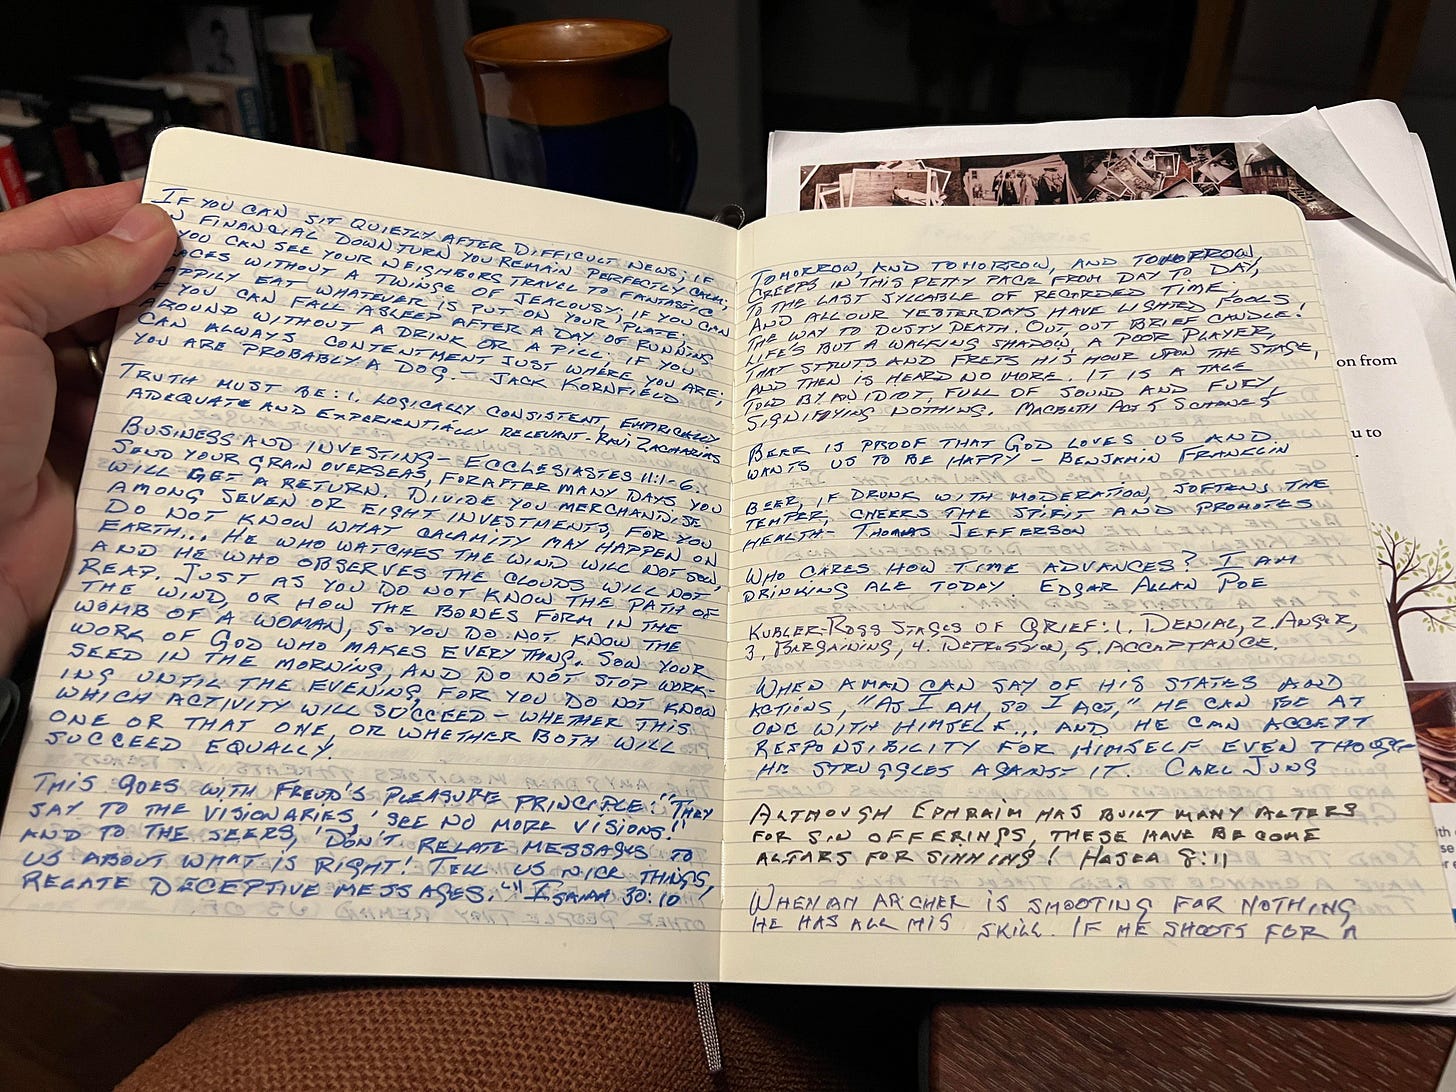 IF YOU CAN SIT QUIETLY AFTER DIFFICULT NEWS; IF
IN FINANCIAL DOWNTURN YOU REMAIN PERFECTLY CALM;
YOU CAN SEE YOUR NEIGHBORS TRAVEL TO FANTASTIC
PLACES WITHOUT A TWINGE OF JEALOUSY; IF YOU CAN
HAPPILY EAT WHATEVER IS PUT ON YOUR PLATE;
IF YOU CAN FALL ASLEEP AFTER A DAY OF RUNNING
AROUND WITHOUT A DRINK OR A PILL; IF YOU
CAN ALWAYS CONTENTMENT JUST WHERE YOU ARE;
YOU ARE PROBABLY A DOG. – JACK KORNFIELD
TRUTH MUST BE: 1. LOGICALLY CONSISTENT, EMPIRICALLY
ADEQUATE AND EXPERIENTIALLY RELEVANT. RAVI ZACHARIAS
BUSINESS AND INVESTING – ECCLESIASTES 11:1-6.
SEND YOUR GRAIN OVERSEAS, FOR AFTER MANY DAYS YOU
WILL GET A RETURN. DIVIDE YOU MERCHANDISE
AMONG SEVEN OR EIGHT INVESTMENTS, FOR YOU
DO NOT KNOW WHAT CALAMITY MAY HAPPEN ON
EARTH... HE WHO WATCHES THE WIND WILL NOT SOW,
AND HE WHO OBSERVES THE CLOUDS WILL NOT
REAP. JUST AS YOU DO NOT KNOW THE PATH OF
THE WIND, OR HOW THE BONES FORM IN THE
WOMB OF A WOMAN, SO YOU DO NOT KNOW THE
WORK OF GOD WHO MAKES EVERYTHING. SOW YOUR
SEED IN THE MORNING, AND DO NOT STOP WORK-
ING UNTIL THE EVENING, FOR YOU DO NOT KNOW
WHICH ACTIVITY WILL SUCCEED – WHETHER THIS
ONE OR THAT ONE, OR WHETHER BOTH WILL
SUCCEED EQUALLY.
THIS GOES WITH FREUD'S PLEASURE PRINCIPLE: "THEY
SAY TO THE VISIONARIES 'SEE NO MORE VISIONS!'
AND TO THE SEERS, 'DON'T RELATE MESSAGES TO
US ABOUT WHAT IS RIGHT! TELL US NICE THINGS,
RELATE DECEPTIVE MESSAGES.'" ISAIAH 30:10
TOMORROW, AND TOMORROW, AND TOMORROW,
CREEPS IN THIS PETTY PACE FROM DAY TO DAY,
TO THE LAST SYLLABLE OF RECORDED TIME;
AND ALL OUR YESTERDAYS HAVE LIGHTED FOOLS
THE WAY TO DUSTY DEATH. OUT, OUT BRIEF CANDLE!
LIFE'S BUT A WALKING SHADOW, A POOR PLAYER,
THAT STRUTS AND FRETS HIS HOUR UPON THE STAGE,
AND THEN IS HEARD NO MORE. IT IS A TALE
TOLD BY AN IDIOT, FULL OF SOUND AND FURY,
SIGNIFYING NOTHING. MACBETH ACT 5 SCENE 5
BEER IS PROOF THAT GOD LOVES US AND
WANTS US TO BE HAPPY – BENJAMIN FRANKLIN
BEER, IF DRUNK WITH MODERATION, SOFTENS THE
TEMPER, CHEERS THE SPIRIT AND PROMOTES
HEALTH – THOMAS JEFFERSON
WHO CARES HOW TIME ADVANCES? I AM
DRINKING ALE TODAY. EDGAR ALLAN POE
KUBLER-ROSS STAGES OF GRIEF: 1. DENIAL, 2. ANGER,
3. BARGAINING, 4. DEPRESSION, 5. ACCEPTANCE.
WHEN A MAN CAN SAY OF HIS STATES AND
ACTIONS, "AS I AM, SO I ACT," HE CAN BE AT
ONE WITH HIMSELF... AND HE CAN ACCEPT
RESPONSIBILITY FOR HIMSELF EVEN THOUGH
HE STRUGGLES AGAINST IT. CARL JUNG
ALTHOUGH EPHRAIM HAS BUILT MANY ALTERS
FOR SIN OFFERINGS, THESE HAVE BECOME
ALTARS FOR SINNING! HOSEA 8:11
WHEN AN ARCHER IS SHOOTING FOR NOTHING
HE HAS ALL HIS SKILL. IF HE SHOOTS FOR A
on from
u to